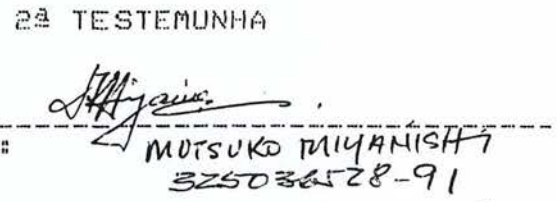 2ª TESTEMUNHA
:
MUTSUKO MIYANISHI
325036528-91